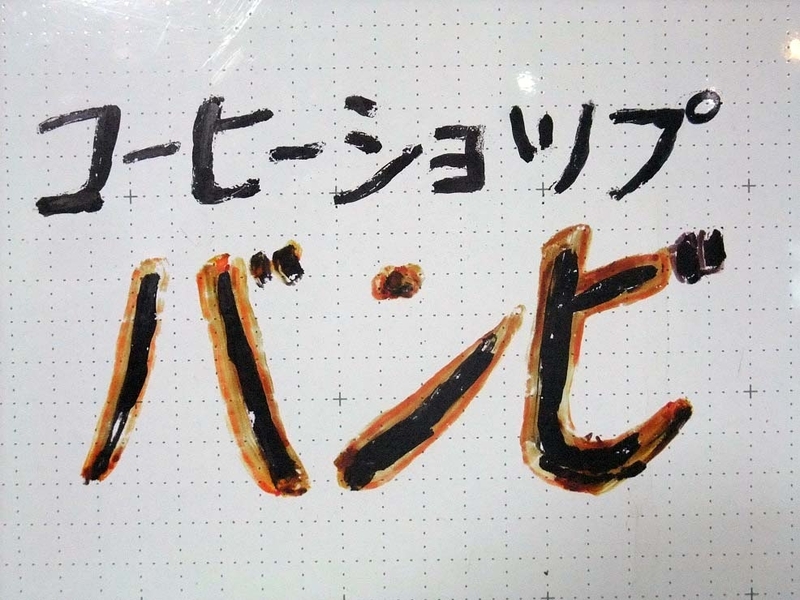 コーヒーショップ
バンビ